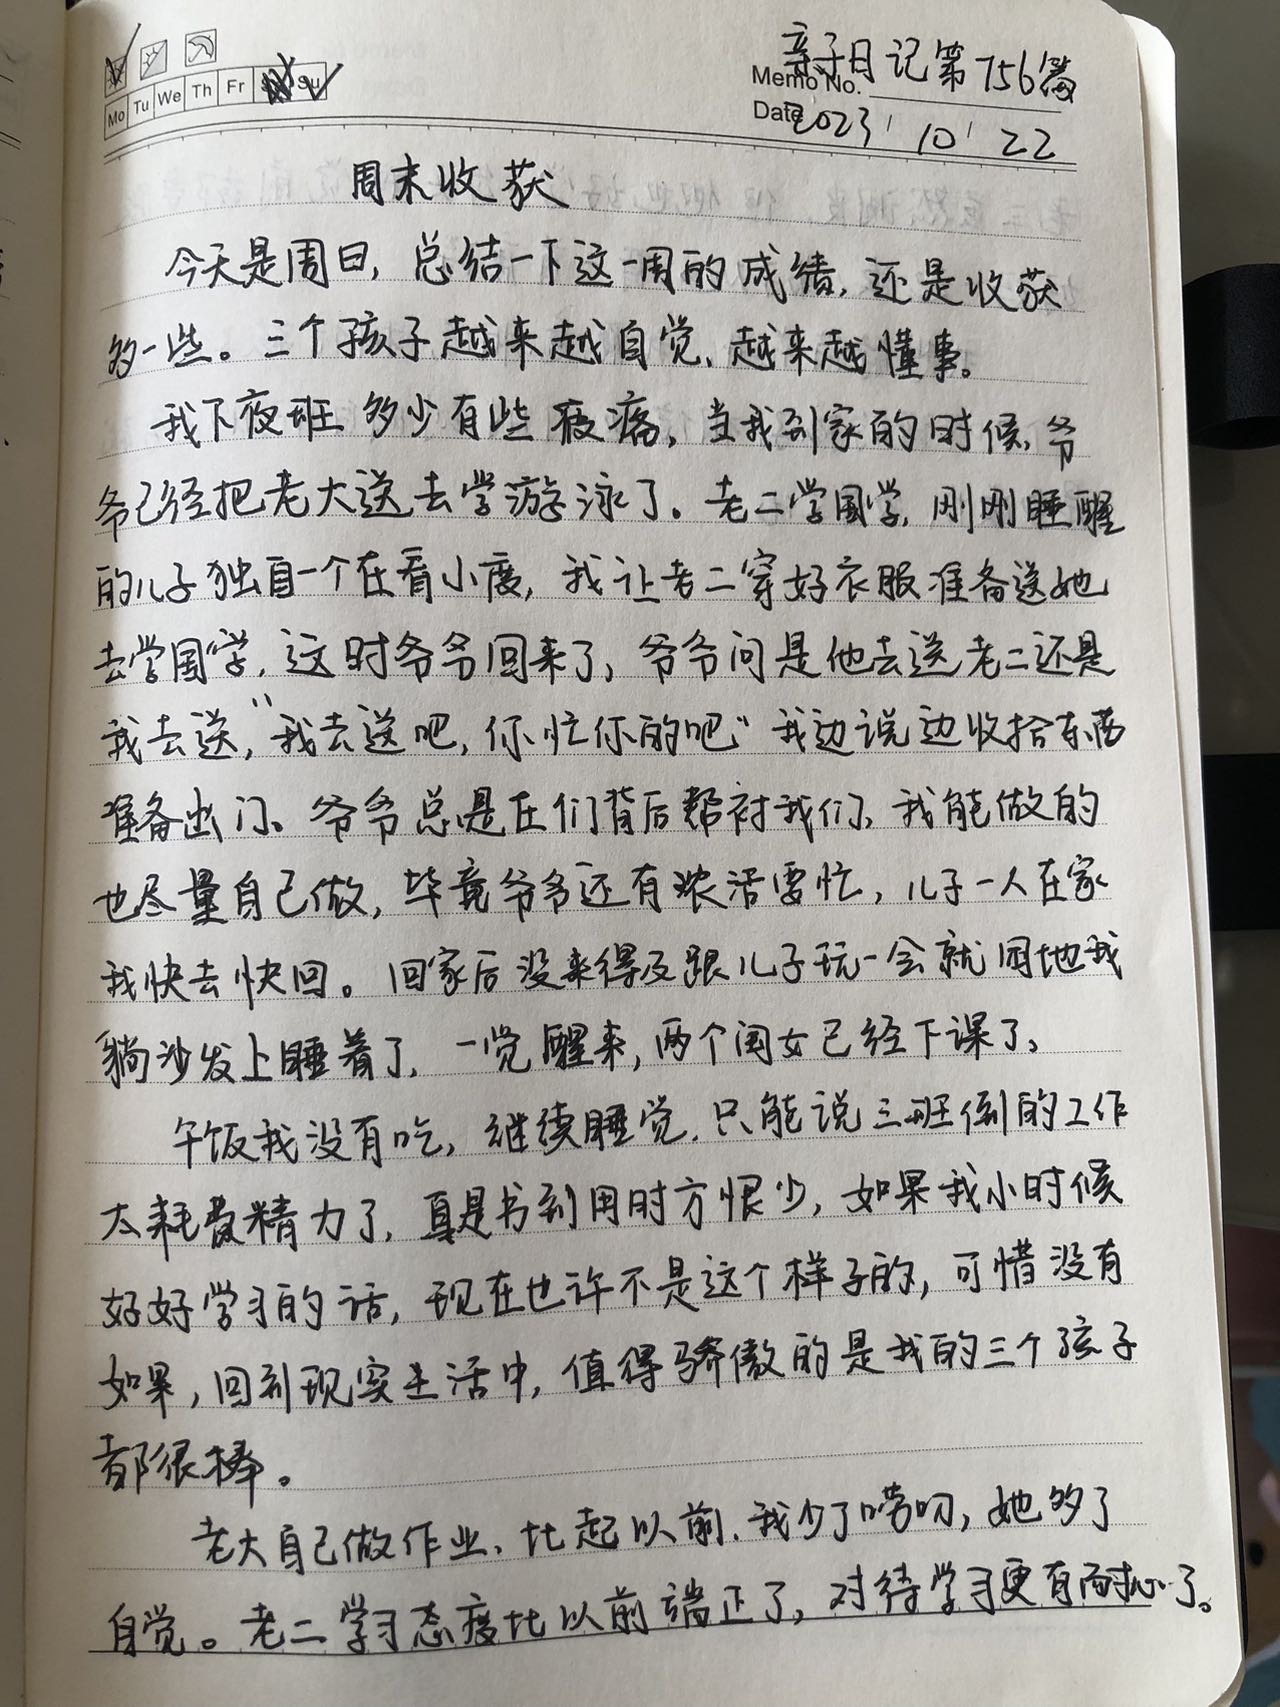 亲子日记第756篇
Memo No.
Mo Tu We Th Fr Su
Date 2023' 10' 22
周末收获
今天是周日，总结一下这一周的成绩，还是收获
多一些。三个孩子越来越自觉，越来越懂事。
我下夜班多少有些疲痛，当我到家的时候，爷
爷已经把老大送去学游泳了。老二学国学，刚刚睡醒
的儿子独自一个在看小度，我让老二穿好衣服准备送她
去学国学，这时爷爷回来了，爷爷问是他去送老二还是
我去送，“我去送吧，你忙你的吧”我边说边收拾东西
准备出门。爷爷总是在们背后帮衬我们，我能做的
也尽量自己做，毕竟爷爷还有农活要忙，儿子一人在家
我快去快回。回家后没来得及跟儿子玩一会就困地我
躺沙发上睡着了，一觉醒来，两个闺女已经下课了。
午饭我没有吃，继续睡觉，只能说三班倒的工作
太耗费精力了，真是书到用时方恨少，如果我小时候
好好学习的话，现在也许不是这个样子的，可惜没有
如果，回到现实生活中，值得骄傲的是我的三个孩子
都很棒。
老大自己做作业，比起以前，我少了唠叨，她多了
自觉。老二学习态度比以前端正了，对待学习更有耐心了。